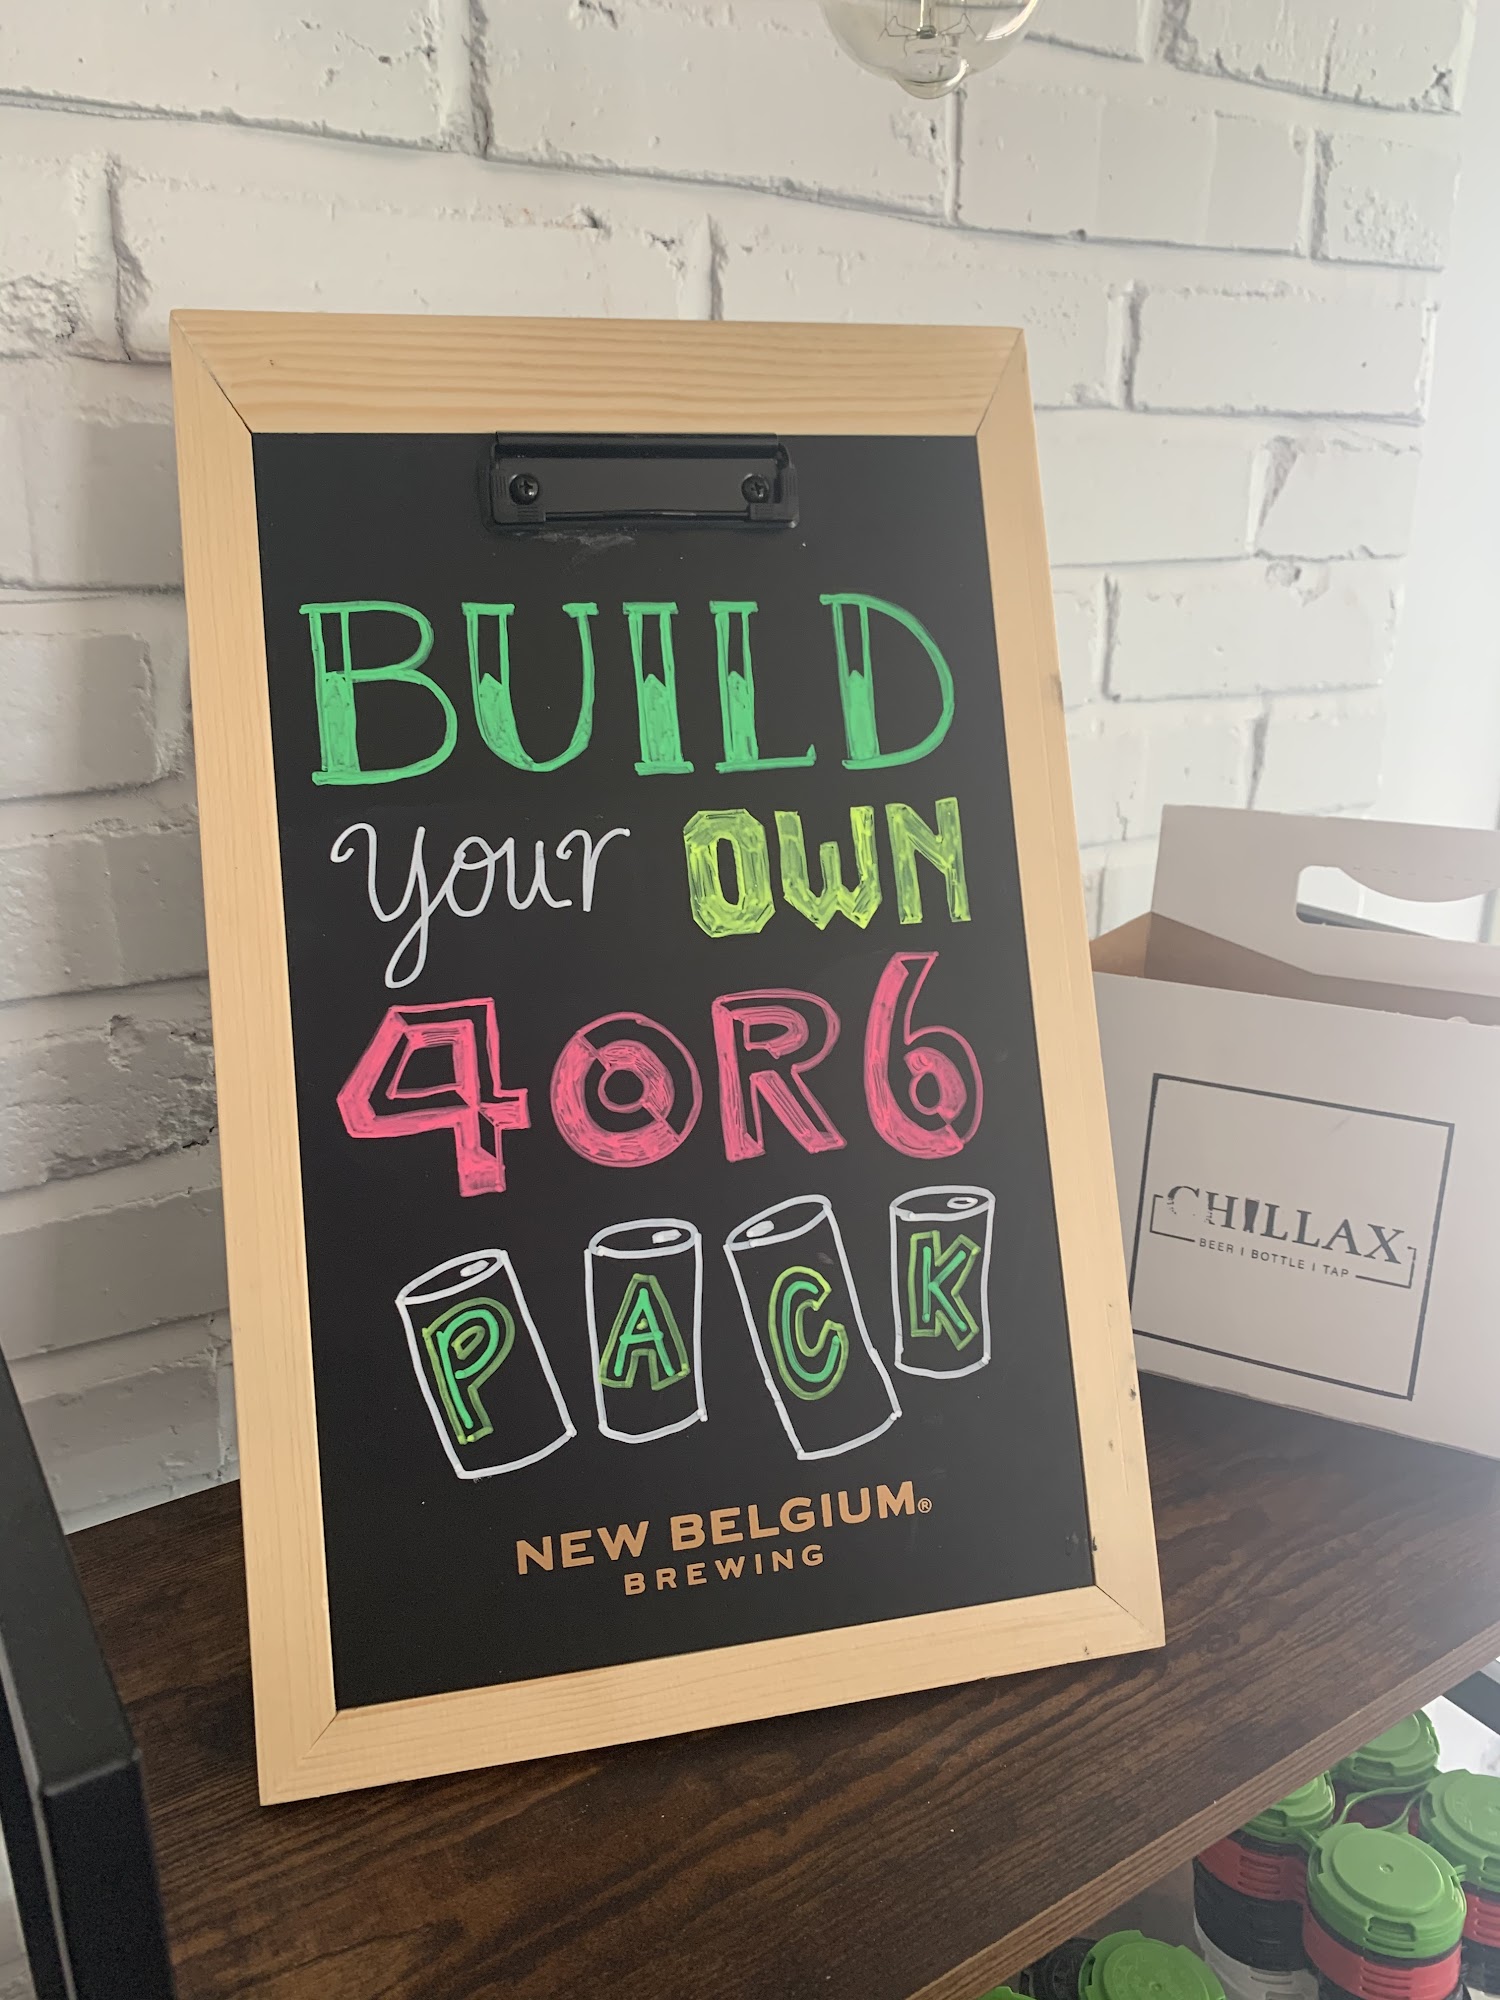 BUILD
your OWN
4 OR 6
PACK
NEW BELGIUM®
BREWING
CHILLAX
BEER | BOTTLE | TAP